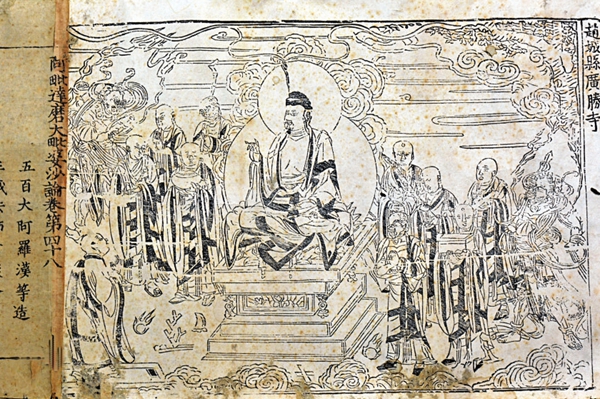 趙城縣廣勝寺
阿毗達磨大毗婆沙論卷第四十八
五百大阿羅漢等造
三藏法師